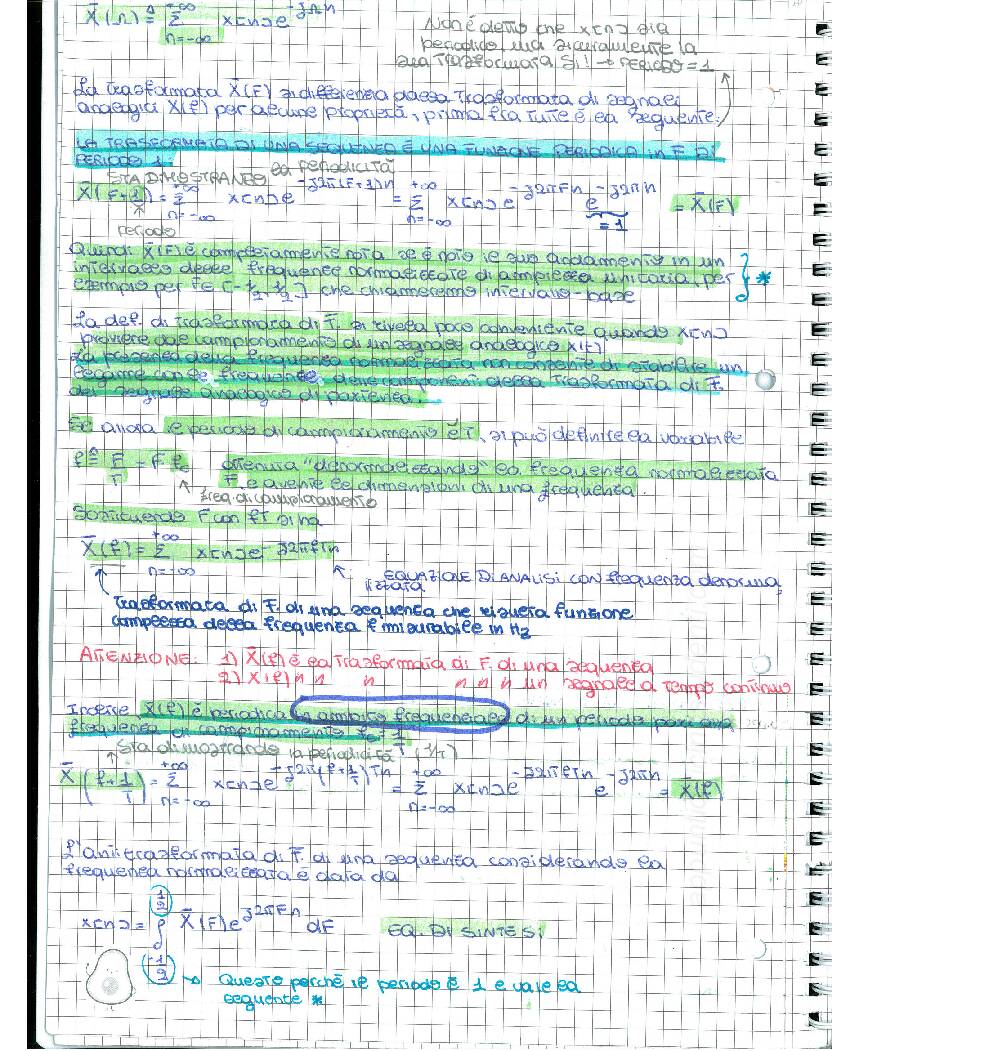 X̄(Ω) ≜ Σ_{n=-∞}^{+∞} x[n] e^{-jΩn}
Non è detto che x[n] sia
periodico, ma sicuramente la
sua trasformata sì! → PERIODO = 1
La trasformata X̄(F) si differenzia dalla trasformata di segnali
analogici X(f) per alcune proprietà, prima fra tutte è la seguente:
LA TRASFORMATA DI UNA SEQUENZA È UNA FUNZIONE PERIODICA in F DI
PERIODO 1.
STA DIMOSTRANDO la periodicità
X̄(F+1) = Σ_{n=-∞}^{+∞} x[n] e^{-j2π(F+1)n} = Σ_{n=-∞}^{+∞} x[n] e^{-j2πFn} e^{-j2πn} = X̄(F)
= 1
periodo
Quindi X̄(F) è completamente nota se è noto il suo andamento in un
intervallo delle frequenze normalizzate di ampiezza unitaria, per
esempio per F∈[-1/2, 1/2] che chiameremo intervallo-base
*
La def. di trasformata di F. si rivela poco conveniente quando x[n]
proviene dal campionamento di un segnale analogico x(t).
La presenza della frequenza normalizzata non consente di stabilire un
legame con le frequenze delle componenti della trasformata di F.
del segnale analogico di partenza.
Se allora il periodo di campionamento è T, si può definire la variabile
f ≜ F/T = F f_c ottenuta "denormalizzando" la frequenza normalizzata
F e avente le dimensioni di una frequenza.
freq. di campionamento
Sostituendo F con fT si ha
X̄(f) = Σ_{n=-∞}^{+∞} x[n] e^{-j2πfTn}
EQUAZIONE DI ANALISI con frequenza denorma
lizzata
Trasformata di F. di una sequenza che risulta funzione
complessa della frequenza f misurabile in Hz
ATTENZIONE: 1) X̄(f) è la trasformata di F. di una sequenza
2) X(f) " " " " " " un segnale a tempo continuo
Inoltre X̄(f) è periodica in ambito frequenziale di un periodo pari alla
frequenza di campionamento f_c = 1/T
Sta dimostrando la periodicità (1/T)
X̄(f + 1/T) = Σ_{n=-∞}^{+∞} x[n] e^{-j2π(f+1/T)Tn} = Σ_{n=-∞}^{+∞} x[n] e^{-j2πfTn} e^{-j2πn} = X̄(f)
L'antitrasformata di F. di una sequenza considerando la
frequenza normalizzata è data da
x[n] = ∫_{-1/2}^{1/2} X̄(F) e^{j2πFn} dF EQ. DI SINTESI
Questo perché il periodo è 1 e vale la
seguente *